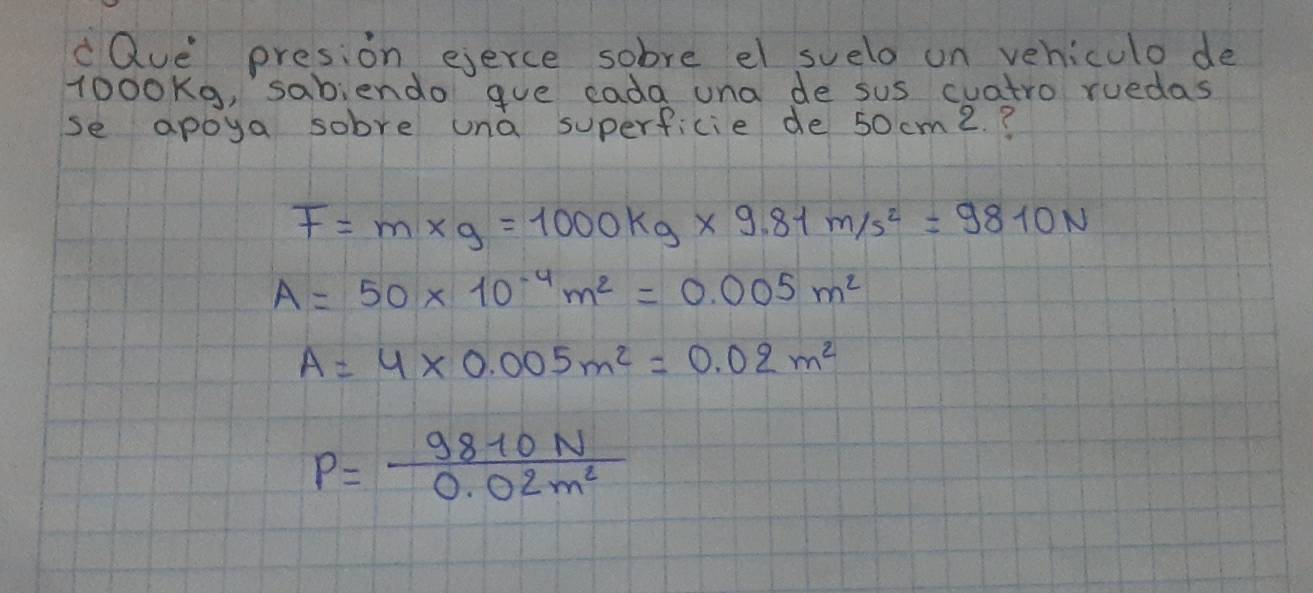 ¿Qué presión ejerce sobre el suelo un vehiculo de
1000Kg, sabiendo que cada una de sus cuatro ruedas
se apoya sobre una superficie de 50cm2.?
F = m × g = 1000Kg × 9.81 m/s² = 9810N
A = 50 × 10⁻⁴ m² = 0.005 m²
A = 4 × 0.005m² = 0.02 m²
P = 9810 N
0.02m²